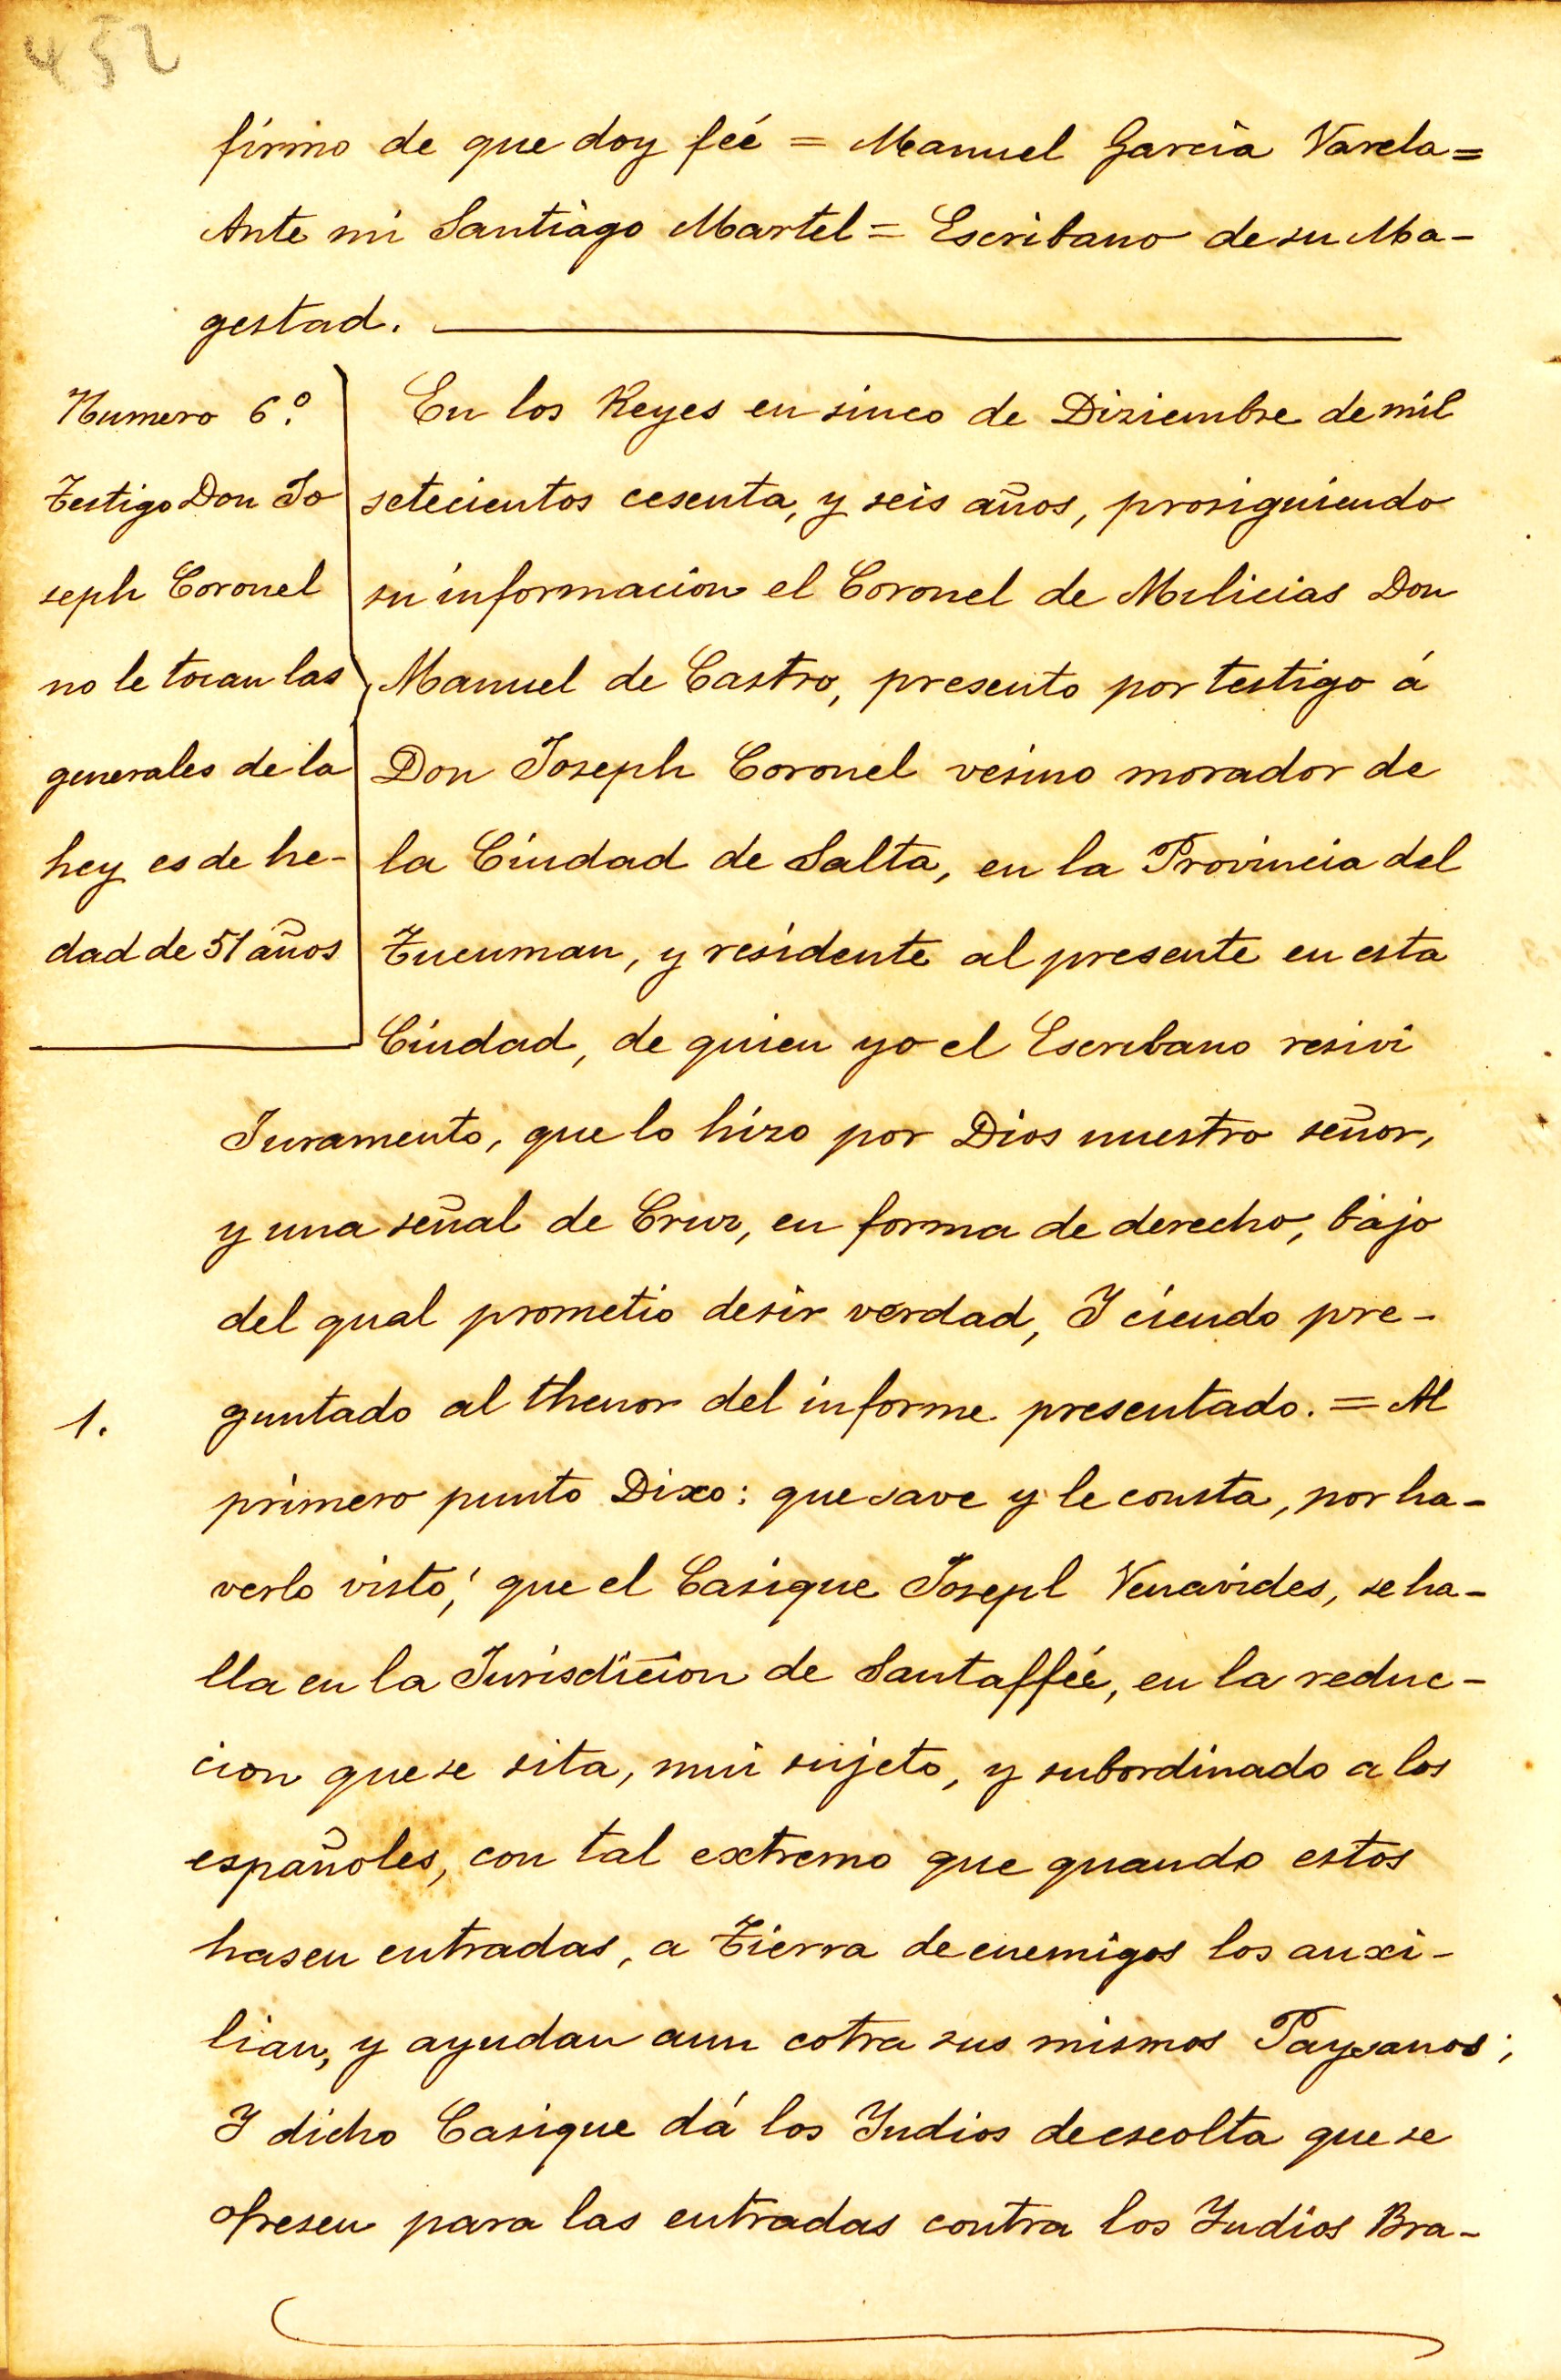 452
firmo de que doy feé = Manuel Garcia Varela =
Ante mi Santiago Martel = Escribano de su Ma-
gestad.
Numero 6º.
Testigo Don Jo
seph Coronel
no le tocan las
generales de la
hey es de he-
dad de 51 años
En los Reyes en sinco de Diziembre de mil
setecientos cesenta, y seis años, prosiguiendo
su informacion el Coronel de Milicias Don
Manuel de Castro, presento por testigo á
Don Joseph Coronel vesino morador de
la Ciudad de Salta, en la Provincia del
Tucuman, y residente al presente en esta
Ciudad, de quien yo el Escribano resivi
Juramento, que lo hizo por Dios nuestro señor,
y una señal de Cruz, en forma de derecho, bajo
del qual prometio desir verdad, Y ciendo pre-
1. guntado al thenor del informe presentado. = Al
primero punto Dixo: que save y le consta, por ha-
verlo visto, que el Casique Josepl Venavides, se ha-
lla en la Jurisdicion de Santaffée, en la reduc-
cion que se sita, mui sujeto, y subordinado a los
españoles, con tal extremo que quando estos
hasen entradas, a Tierra de enemigos los auxi-
lian, y ayudan aun cotra sus mismos Paysanos;
Y dicho Casique dá los Yndios de escolta que se
ofresen para las entradas contra los Yndios Bra-